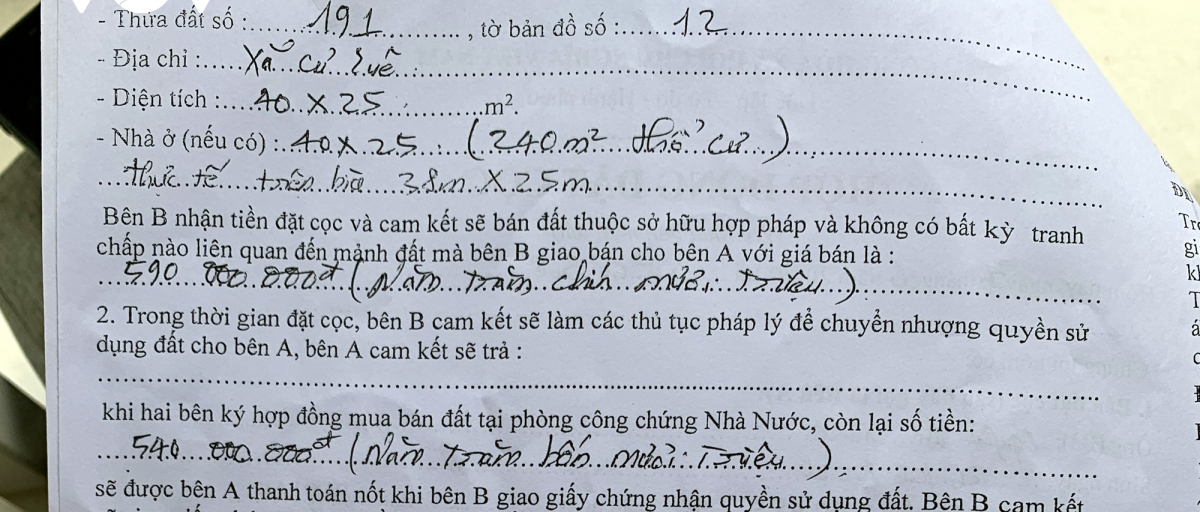 - Thửa đất số :.....191............. , tờ bản đồ số :......12......
- Địa chỉ :.....Xã Cư Suê......
- Diện tích :....40 x 25..............m².
- Nhà ở (nếu có) :..40 x 25....(240m² thổ cư)......
....thực tế.....trên bìa....38m x 25m......
Bên B nhận tiền đặt cọc và cam kết sẽ bán đất thuộc sở hữu hợp pháp và không có bất kỳ tranh
chấp nào liên quan đến mảnh đất mà bên B giao bán cho bên A với giá bán là :
...590.000.000đ (Năm trăm chín mươi triệu)......
2. Trong thời gian đặt cọc, bên B cam kết sẽ làm các thủ tục pháp lý để chuyển nhượng quyền sử
dụng đất cho bên A, bên A cam kết sẽ trả :
khi hai bên ký hợp đồng mua bán đất tại phòng công chứng Nhà Nước, còn lại số tiền:
....540.000.000đ (Năm trăm bốn mươi Triệu)......
sẽ được bên A thanh toán nốt khi bên B giao giấy chứng nhận quyền sử dụng đất. Bên B cam kết